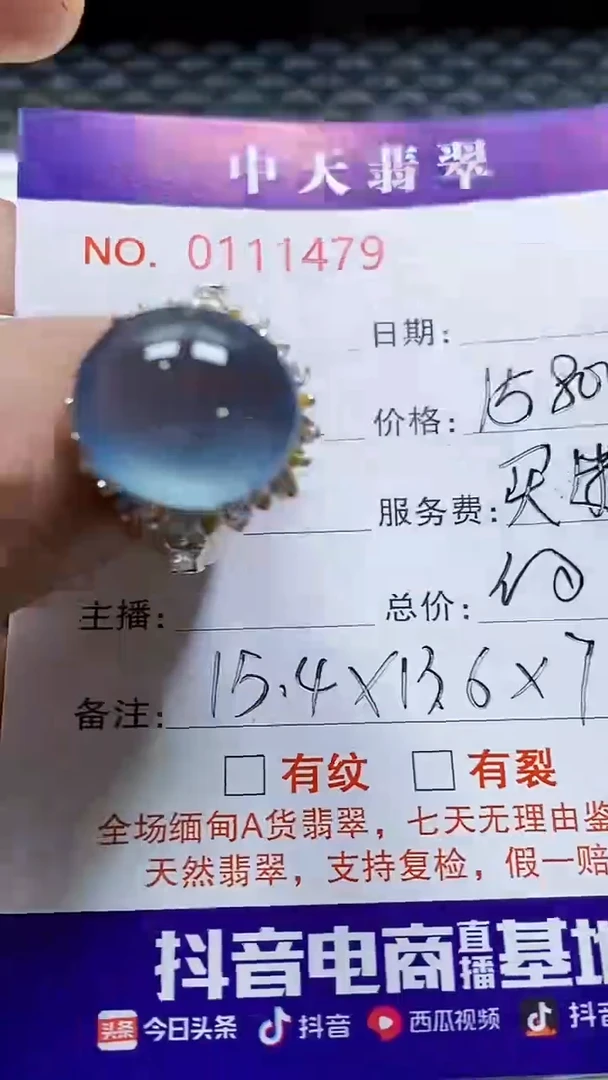 中天翡翠
NO. 0111479
日期:
价格: 1580
服务费: 买
主播:
总价:
备注: 15.4×13.6×7
有纹 有裂
全场缅甸A货翡翠，七天无理由鉴
天然翡翠，支持复检，假一赔
抖音电商直播基地
头条 今日头条 抖音 西瓜视频 抖音